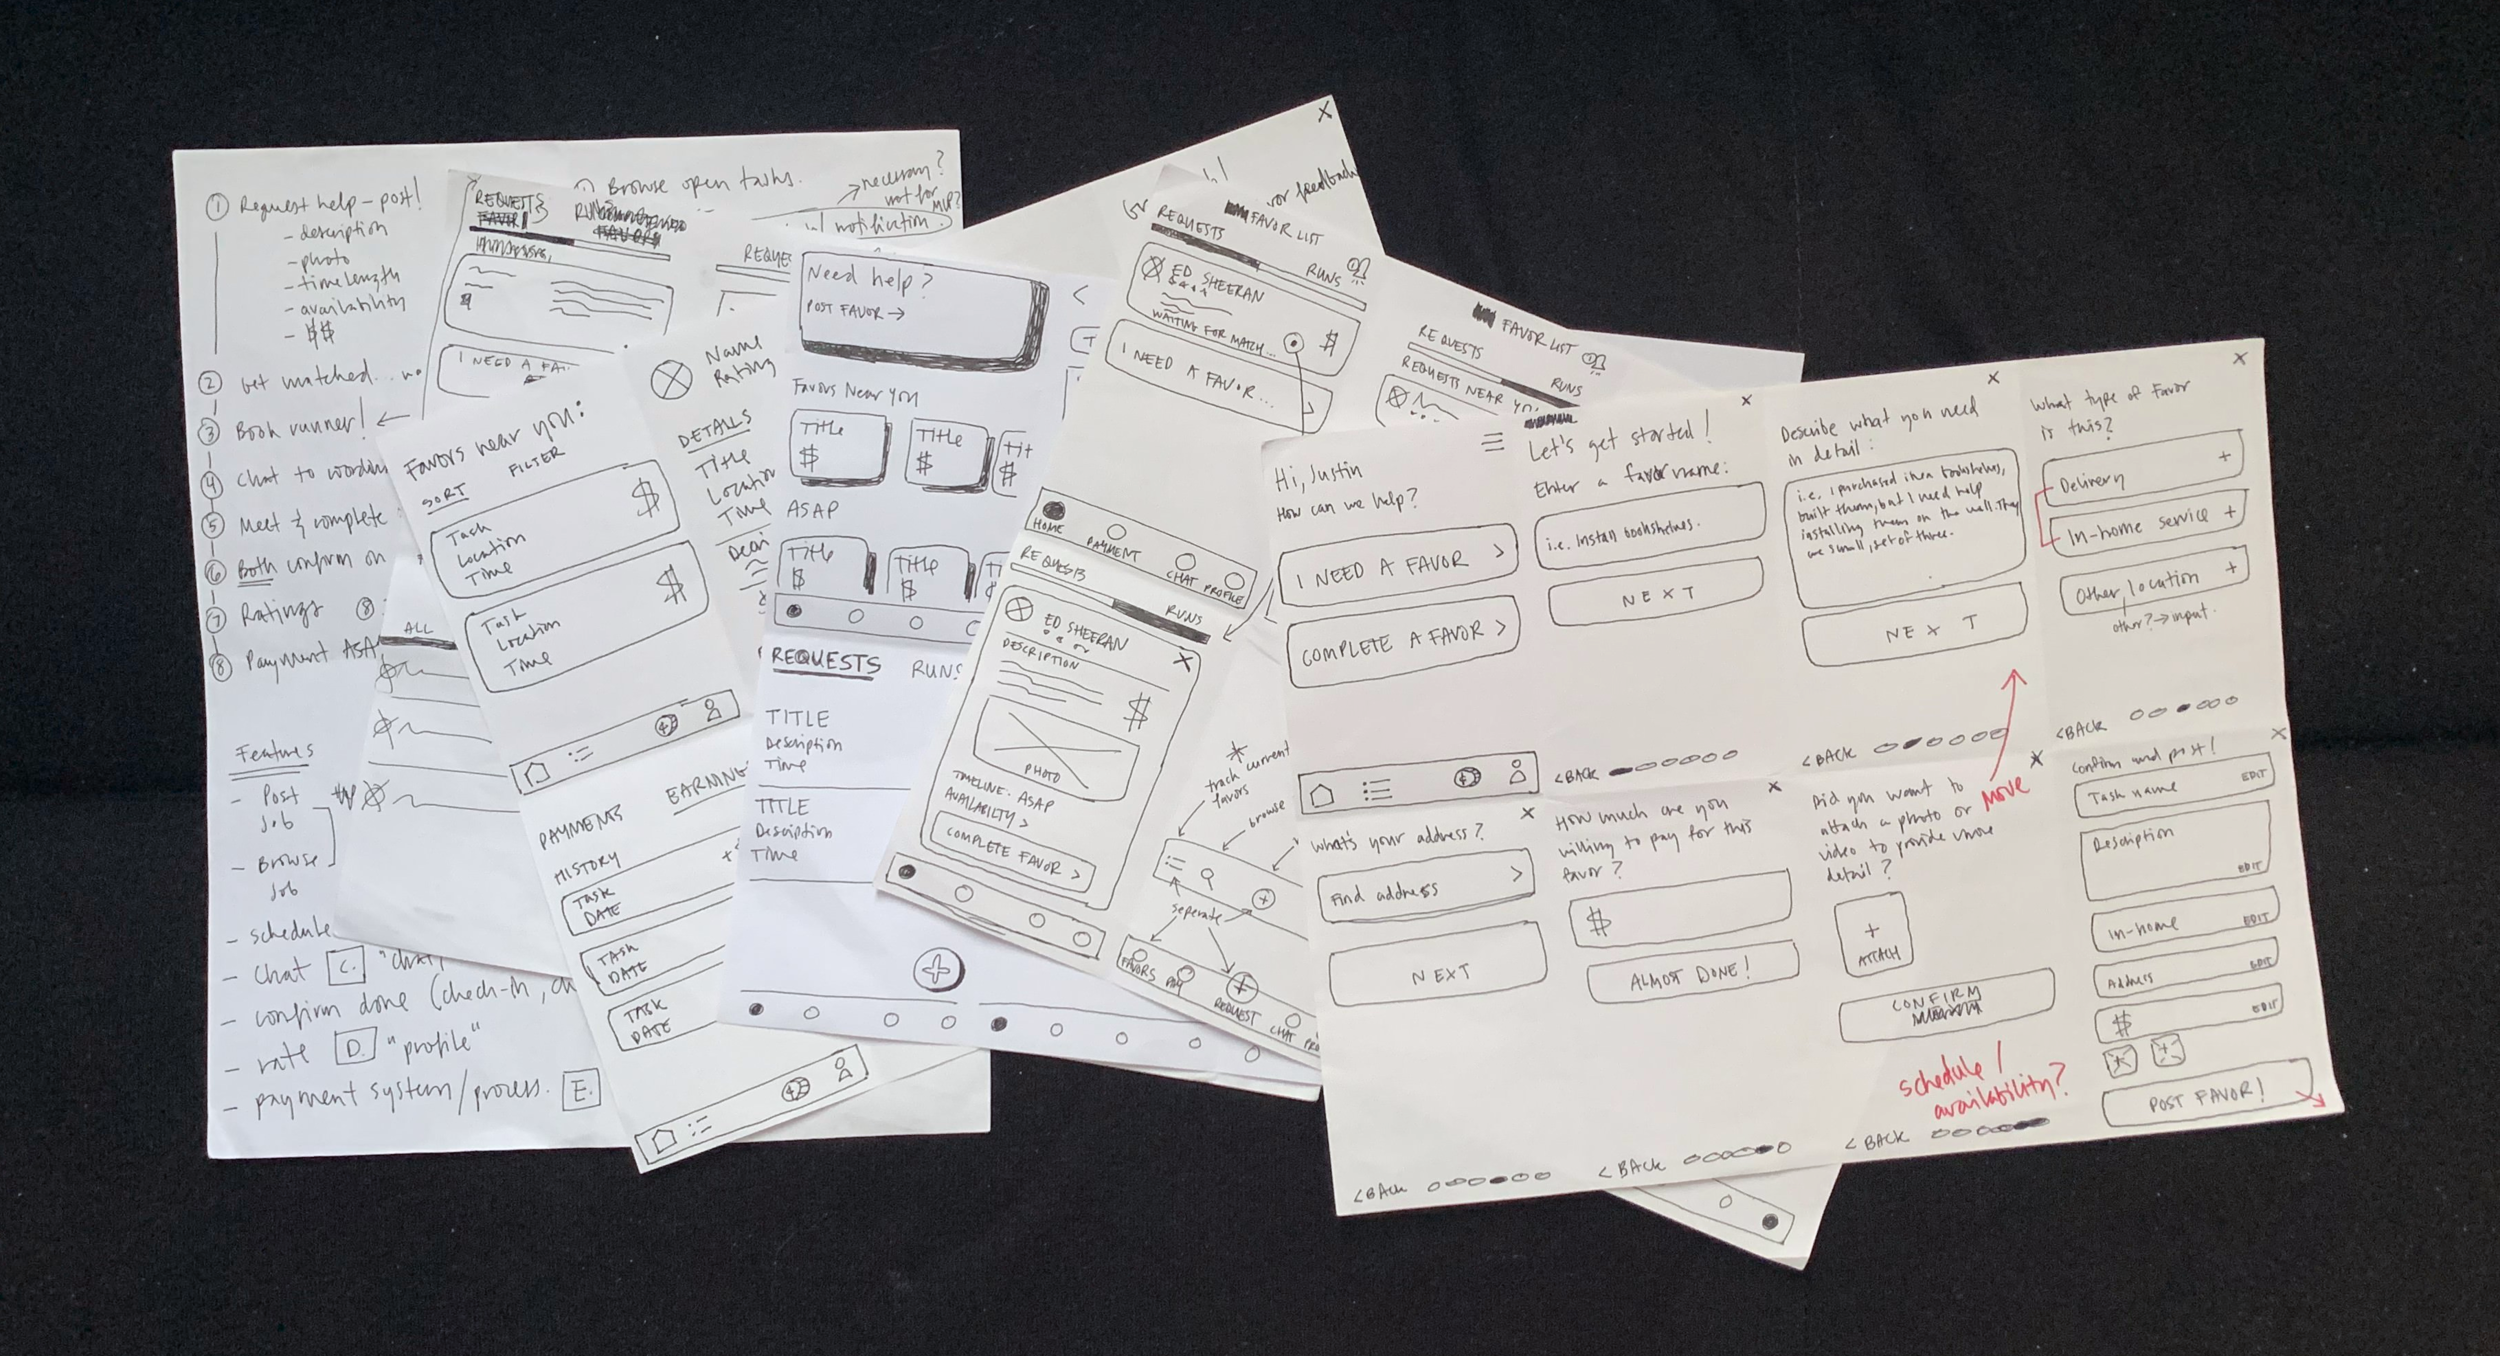 ① Request help - post!
- description
- photo
- time length
- availability
- $$
② Get matched...
③ Book runner! ←
④ Chat to
⑤ Meet & complete
⑥ Both confirm on
⑦ Ratings ⑧
⑧ Payment ASAP
Features
- Post
Job
- Browse
Job
- schedule
- chat C. "chat"
- confirm done (check-in,
- rate D. "profile"
- payment system/process. E.
Browse open tasks.
→ necessary?
not for
MVP?
notification.
REQUESTS
FAVORS
FAVORS
I NEED A
REQUES
ALL
Favors near you:
SORT FILTER
Task
Location
Time
$
Task
Location
Time
$
Name
Rating
DETAILS
Title
Location
Time
PAYMENTS EARNING
HISTORY
Task
DATE
TASK
DATE
TASK
DATE
Need help?
POST FAVOR →
Favors Near You
Title
$
Title
$
Tit
$
ASAP
Title
$
Title
$
REQUESTS RUNS
TITLE
Description
Time
TITLE
Description
Time
for feedback
FAVOR LIST
REQUESTS RUNS
ED SHEERAN
WAITING FOR MATCH... $
I NEED A FAVOR...
HOME PAYMENT CHAT PROFILE
FAVOR LIST
REQUESTS RUNS
REQUESTS NEAR
REQUESTS RUNS
ED SHEERAN
DESCRIPTION
$
PHOTO
TIMELINE: ASAP
AVAILABILTY >
COMPLETE FAVOR >
*
track current
favors
browse
seperate
FAVORS PAY REQUEST CHAT
Hi, Justin
How can we help?
I NEED A FAVOR >
COMPLETE A FAVOR >
Let's get started!
Enter a favor name:
i.e. Install bookshelves.
NEXT
< BACK
Describe what you need
in detail:
i.e. I purchased ikea bookshelves,
built them, but I need help
installing them on the wall. They
are small, set of three.
NEXT
< BACK
What type of favor
is this?
Delivery +
In-home service +
Other location +
other? → input.
< BACK
What's your address?
Find address >
NEXT
< BACK
How much are you
willing to pay for this
favor?
$
ALMOST DONE!
< BACK
Did you want to
attach a photo or
video to provide more
detail?
MOVE
+
ATTACH
CONFIRM
schedule/
availability?
< BACK
Confirm and post!
Task name EDIT
Description
EDIT
In-home EDIT
Address EDIT
$ EDIT
POST FAVOR!